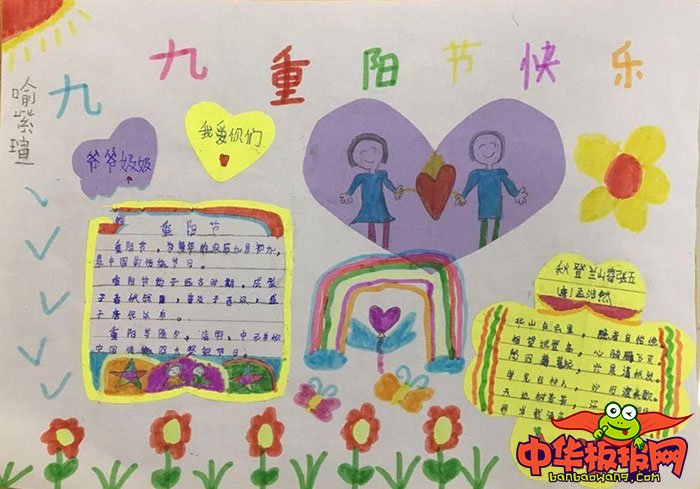 九九重阳节快乐
喻紫瑄
爷爷奶奶
我爱你们
重阳节
重阳节,为每年的农历九月初九,
是中国的传统节日。
重阳节始于远古时期,成型
于春秋战国,普及于西汉,盛
于唐代以后。
重阳与除夕、清明、中元并称
中国传统四大祭祖节日。
秋登兰山寄张五
(唐)孟浩然
北山白云里 隐者自怡悦
相望试登高 心随雁飞灭
愁因薄暮起 兴是清秋发
时见归村人 沙行渡头歇
天边树若荠 江
何当载酒来
中华板报网
banbaowang.com